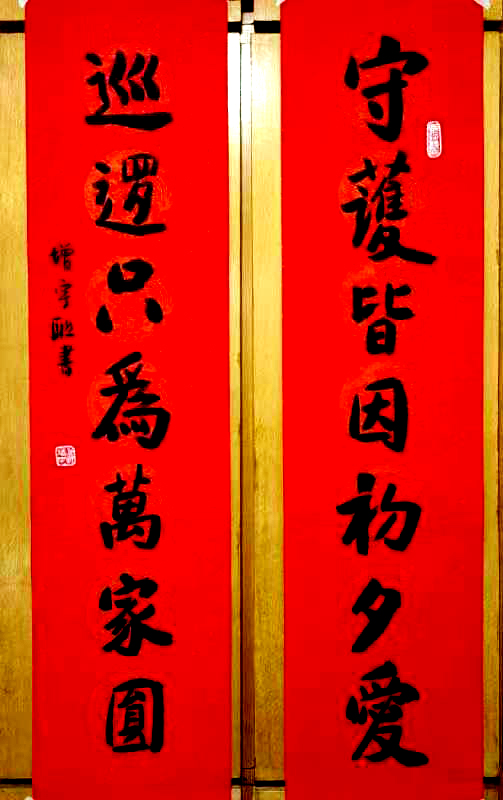 守護皆因初夕愛
巡邏只為萬家圓
增守 書